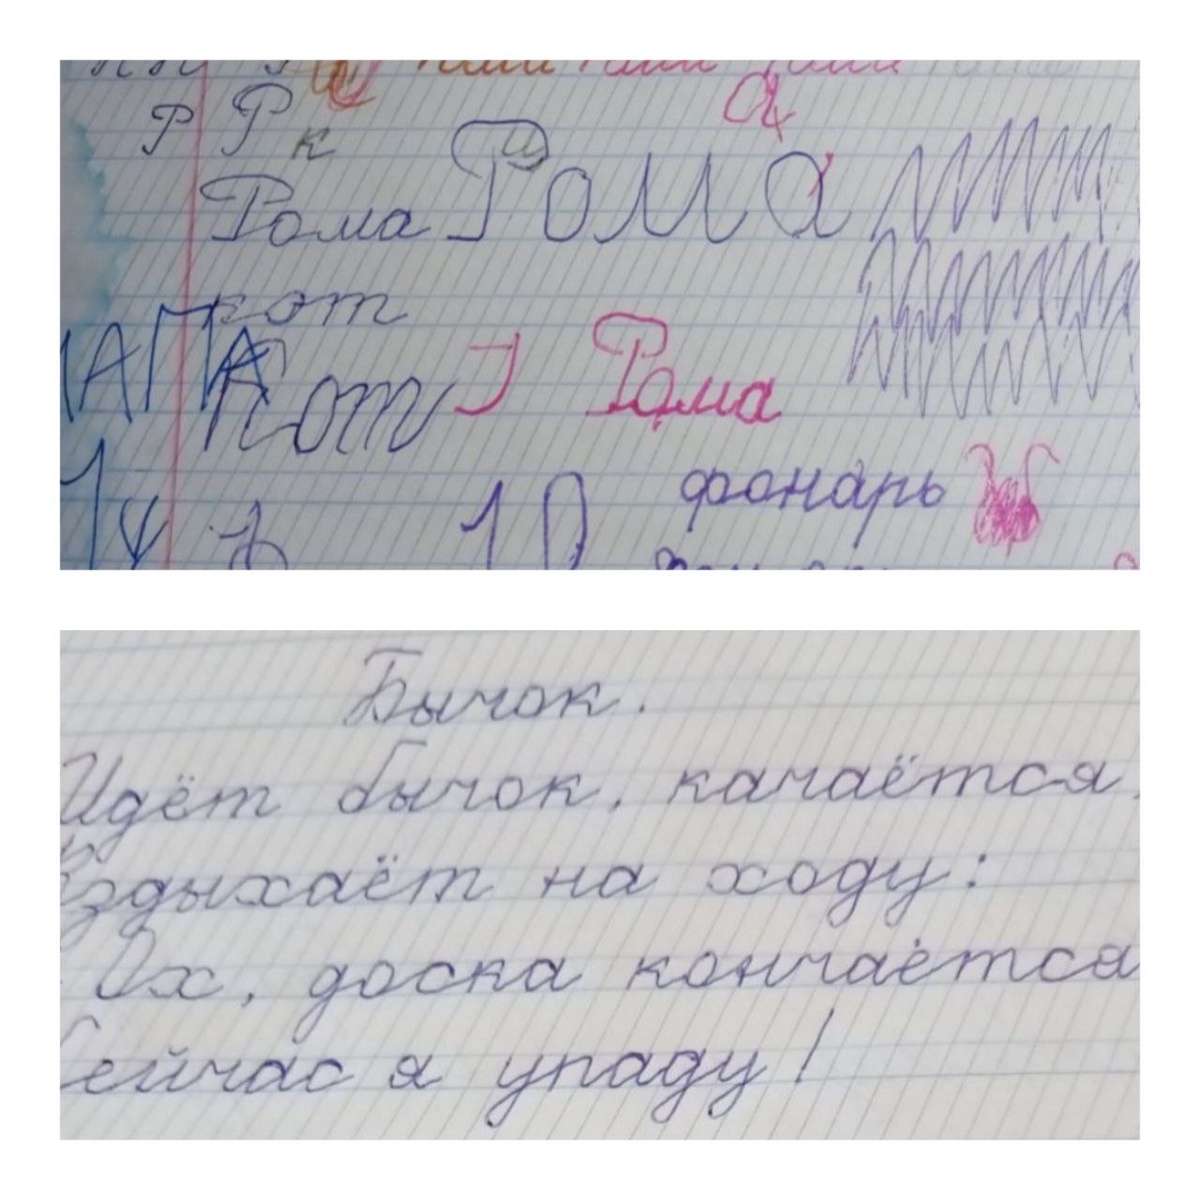 Р Р к а
Рома Рома
кот
ПАПА Кот Рома
фонарь
10
Бычок.
Идёт бычок, качаётся,
Вздыхаёт на ходу:
Ох, доска кончаётся
Сейчас я упаду!